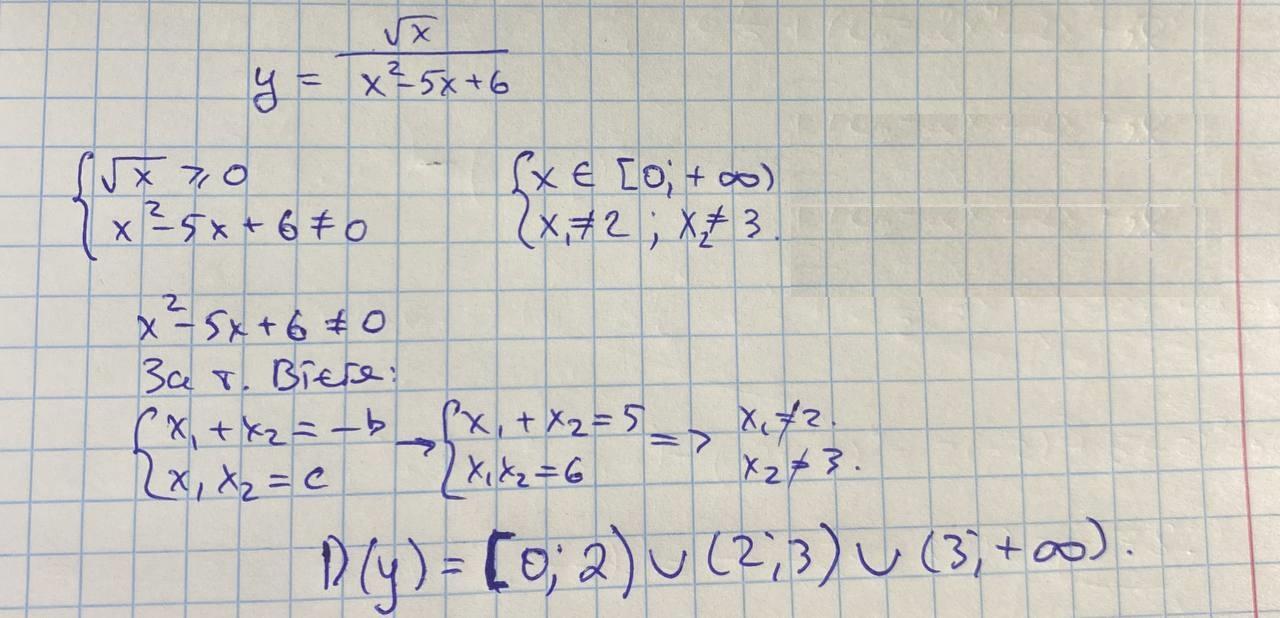 y = √x / (x² - 5x + 6)
{ √x ⩾ 0
x² - 5x + 6 ≠ 0
{ x ∈ [0; +∞)
x₁ ≠ 2 ; x₂ ≠ 3.
x² - 5x + 6 ≠ 0
За т. Вієта:
{ x₁ + x₂ = -b → { x₁ + x₂ = 5 => x₁ ≠ 2.
x₁ x₂ = c x₁x₂ = 6 x₂ ≠ 3.
D(y) = [0; 2) ∪ (2; 3) ∪ (3; +∞).